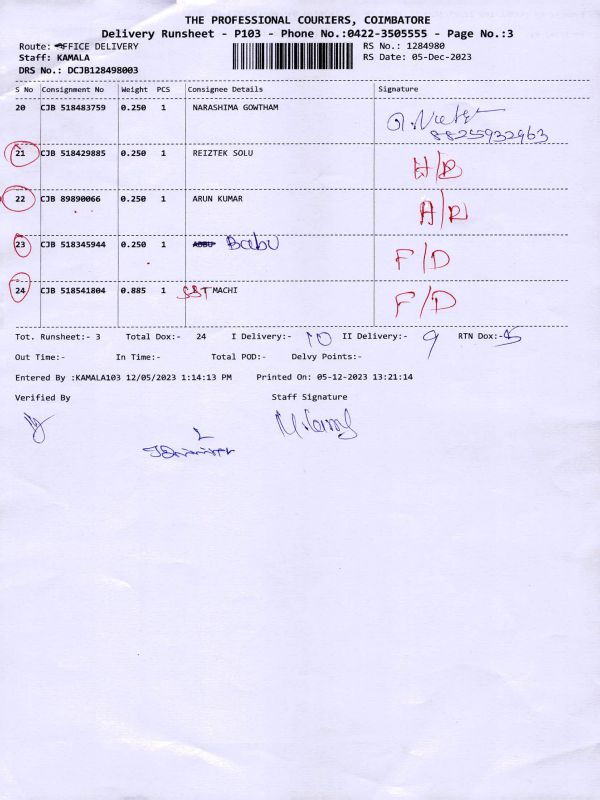 THE PROFESSIONAL COURIERS, COIMBATORE
Delivery Runsheet - P103 - Phone No.:0422-3505555 - Page No.:3
Route: OFFICE DELIVERY RS No.: 1284980
Staff: KAMALA RS Date: 05-Dec-2023
DRS No.: DCJB128498003
S No Consignment No Weight PCS Consignee Details Signature
20 CJB 518483759 0.250 1 NARASHIMA GOWTHAM
8825932963
21 CJB 518429885 0.250 1 REIZTEK SOLU
22 CJB 89890066 0.250 1 ARUN KUMAR
23 CJB 518345944 0.250 1 ABBU Babu F/D
24 CJB 518541804 0.885 1 SBT MACHI F/D
Tot. Runsheet:- 3 Total Dox:- 24 I Delivery:- 10 II Delivery:- 9 RTN Dox:-5
Out Time:- In Time:- Total POD:- Delvy Points:-
Entered By :KAMALA103 12/05/2023 1:14:13 PM Printed On: 05-12-2023 13:21:14
Verified By Staff Signature